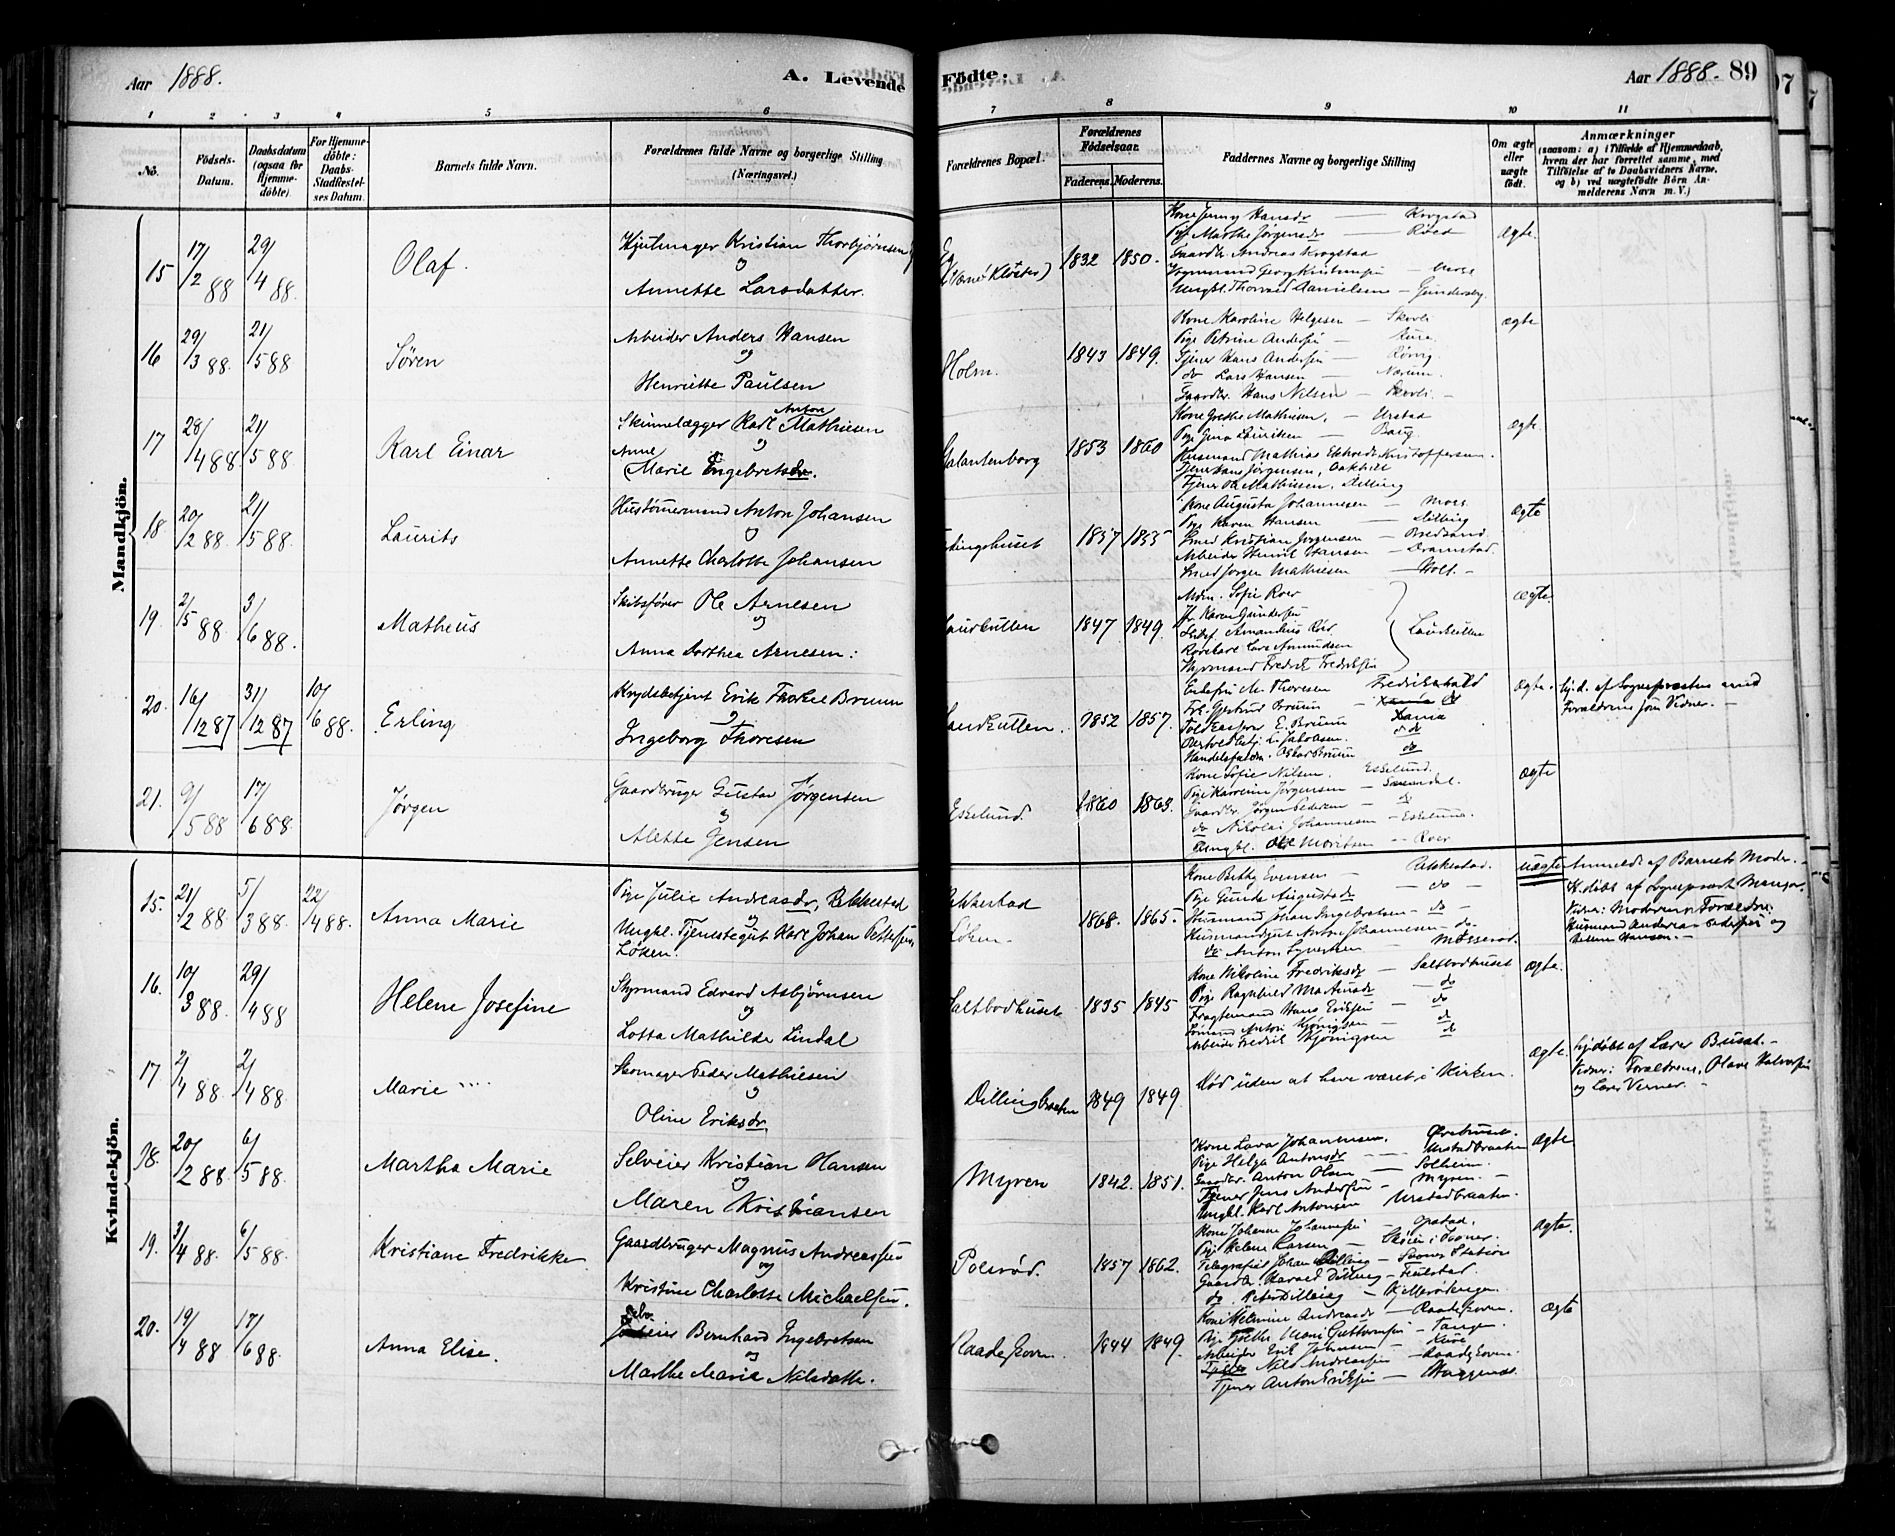 Aar 1888.
A. Levende
Födte.
Aar 1888. 89
1 2 3 4 5 6 7 8 9 10 11
No.
Födsels-Datum.
Daabsdatum (ogsaa for Hjemmedöbte).
For Hjemmedöbte: Daabs-Stadfæstelses Datum.
Barnets fulde Navn.
Forældrenes fulde Navne og borgerlige Stilling (Næringsvei.)
Forældrenes Bopæl.
Forældrenes Födselsaar.
Faderens. Moderens.
Faddernes Navne og borgerlige Stilling
Om ægte eller uægte födt.
Anmærkninger
(saasom: a) i Tilfælde af Hjemmedaab, hvem der har forrettet samme, med Tilföielse af to Daabsvidners Navne, og b) ved uægtefödte Börn Anmelderens Navn m. V.)
Mandkjön.
15 17/2 88 29/4 88. Olaf. Hjulmager Kristian Thorbjørnsen
og
Annette Larsdatter.
(Værne Kloster) 1832 1850.
Kone Jenny Hansdr — Krogstad
Pig Marthe Jørgensdr — Røed
Gaardbr. Andreas Krogstad
Ungkl. Thorvald Danielsen — Gundersby.
ægte
16 29/3 88. 21/5 88 Søren Arbeider Anders Hansen
og
Henriette Paulsen
Holm. 1843 1849.
Kone Karoline Helgesen — Skovli
Pige Petrine Andersen —
Tjener Hans Andersen —
do Lars Hansen — Nærum.
Gaardbr. Hans Nilsen — Skovli. —
ægte
17 28/4 88. 21/5 88 Karl Einar Skinnelægger Karl Anton Mathiesen
og
Anne Marie Engebretsdr.
Galantenborg 1853 1860
Kone Grethe Mathisen, — Urstad
Pige Lauritsen — Borg.
Husmand Mathias Kristoffersen.
Tjener Hans Jørgensen,
Tjener Ole Mathiesen, Dilling
ægte.
18. 20/2 88. 21/5 88. Laurits Hustømermand Anton Johansen
og
Annette Charlotte Johansen
Tingshuset 1857 1855
Kone Augusta Johannesen — Moss.
Pige Karen Hansen — Dilling
Smed Kristian Jørgensen — Bredsand.
Arbeider Henrik Hansen — Dramstad.
Smed Jørgen Mathiesen —
ægte
19. 2/5 88 3/6 88. Matheus Skibsfører Ole Arnesen
og
Anna Dorthea Arnesen.
Laurkullen 1847 1849.
Mdm. Sofie Roer
Fr. Karen Gundersen
Amandius Roer
Lars Amundsen
Styrmand Fredrik Fredriksen
Laurkullen
ægte.
20. 16/12 87 31/12 87 10/6 88. Erling Krydsbetjent Erik Bruun
og
Ingeborg Thoresen
Laurkullen. 1852 1857.
M. Thoresen Fredrikshald
Frk. Gjertrud Bruun —
Toldkasserer E. Bruun Xania
L. Jakobsen. do
Oskar Bruun do
ægte. hj.d. af Sognepresten med
Forældrene som Vidner. —
21. 9/5 88 17/6 88. Jörgen Gaardbruger Gustav Jørgensen
og
Alette Jensen
Eskelund. 1860 1863.
Kone Sofie Nilsen. Eskelund.
Pige Karoline Jørgensen —
Gaardbr. Jørgen Pedersen — do
do Nikolai Johannesen — Eskelund.
Ungkl. Ole Moritsen — Roer
ægte
Kvindekjön.
15. 21/2 88 5/3 88. 22/4 88. Anna Marie Pige Julie Andreasdr, Rekkestad
og
Ungkl. Tjenestegut Karl Johan Pettersen,
Løken.
Rekkestad
Løken. 1868. 1865.
Kone Betty Evensen — Rekkestad.
Pige Gunda Augustsdr — do —
Husmand Johan Ingebretsen — do —
Husmandsgut Anton Johannesen — do
do Anton Syversen — Mosserød.
uægte Anmeldt af Barnets Moder. —
Hj.døbt af Sognepræst Manger.
Vidner: Moderens Forældre:
Husmand Andreas Pedersen og
Helene Hansen. —
16. 10/3 88. 29/4 88 Helene Josefine Styrmand Edvard Asbjørnsen
og
Lotta Mathilde Lindal
Saltbodhuset 1835 1845
Kone Nikoline Fredriksdr — Saltbodhuset
Pige Ragnhild Martinsdr — do
Fragtemand Hans Eriksen — do
Sømand Anton Kjönigsen — do
Arbeider Fredrik Kjönigsen — do
ægte.
17. 2/4 88. 2/4 88. Marie Skomager Peder Mathiesen
og
Oline Eriksdr.
Dillingbraaten 1849 1849.
Død uden at have været i Kirken.
ægte. hj.døbt af Lærer —
Vidner: Forældrene, Olava Halvorsen
og Lærer Verner. —
18. 20/2 88. 6/5 88. Martha Marie Selveier Kristian Hansen
og
Maren Kristiansen
Myren 1842. 1851.
Kone Lava Johannesen,
Pige Helga Antonsdr — Urstadbraaten
Gaardbr. Anton Olsen — Solheim.
Tjener Jens Andersen — Myren. —
Ungkl. Karl Antonsen Urstadbraaten.
ægte
19. 3/4 88. 6/5 88. Kristiane Fredrikke Gaardbruger Magnus Andreassen
og
Kristine Charlotte Michaelsen.
Polsrød. 1857 1862.
Kone Johanne Johannesen — Opstad,
Pige Helene Larsen —
Telegrafist Johan Dilling — Soner Station
Gaardbr. Harald Dilling —
do. Peter Dilling —
ægte.
20. 19/4 88 17/6 88. Anna Elise. Selveier Bernhard Ingebretsen
og
Marthe Marie Nilsdatter.
Raadeskoven. 1844 1849.
Kone Andreasdr — Raadeskoven.
Pige Marie Guttormsen — Tangen.
Arbeider Erik Johansen —
Nils Andreassen — Raadeskoven.
Tjener Anton Eriksen —
ægte